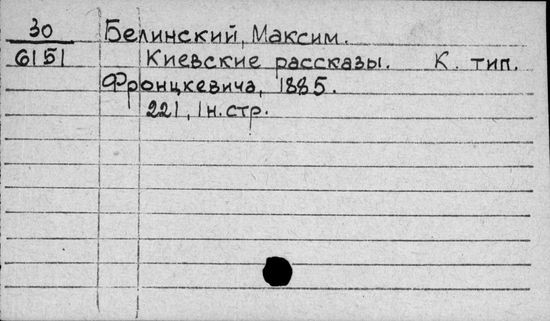 30 Белинский, Максим.
6151 Киевские рассказы. К. тип.
Фронцкевича, 1885.
221, 1 н. стр.